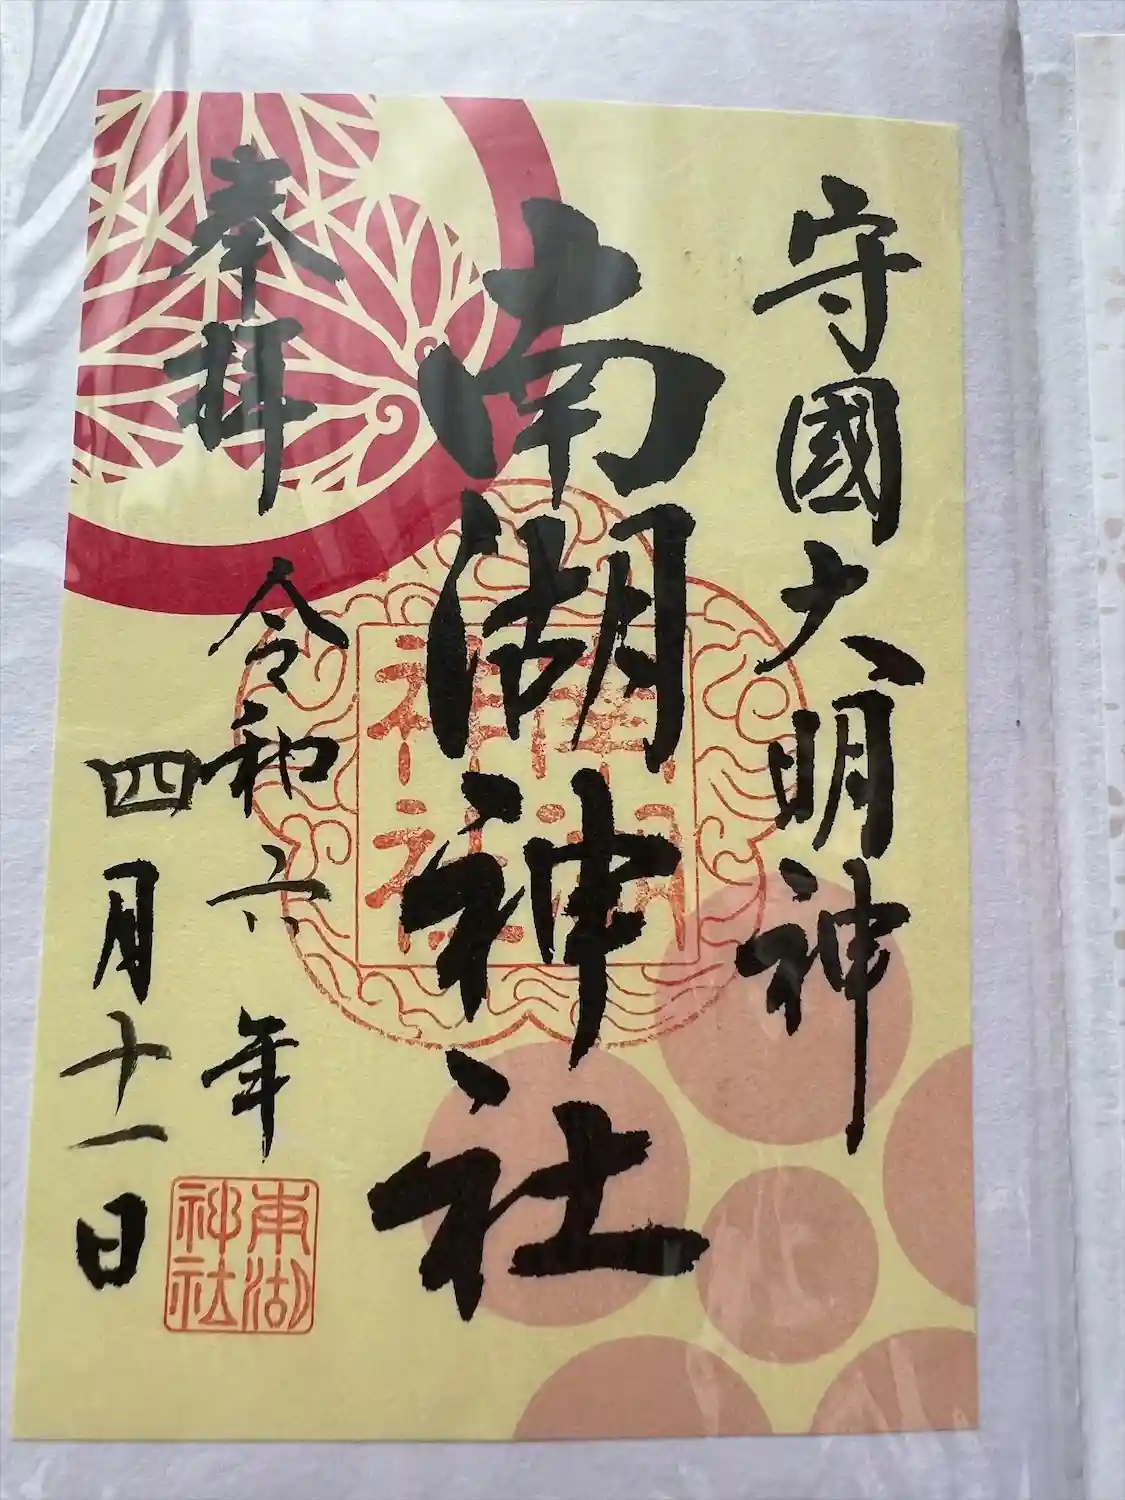 守國大明神
南湖神社
奉拝
令和六年
四月十一日
南湖
神社
南湖
神社